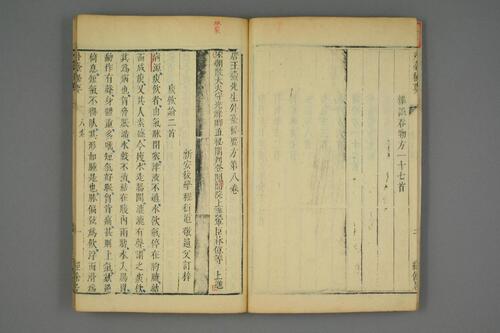 雜誤吞物方一十七首
唐王燾先生外臺秘要方第八卷
宋朝散大夫守光祿卿直秘閣判登聞檢院上護軍臣林億等 上進
新安後學程衍道敬通父訂梓
痰飲論二首
病源痰飲者由氣脉閉塞津液不通水飲氣停在胸腑結
而成痰又其人素盛今瘦水走腸間漉漉有聲謂之痰飲
其為病也胸脅脹滿水穀不消結在腹內兩肋水入腸胃
動作有聲身體重多唾短氣好眠胸背痛甚則上氣欬逆
倚息短氣不得臥其形如腫是也脉偏弦為飲浮而滑為
外臺秘要 八卷 一